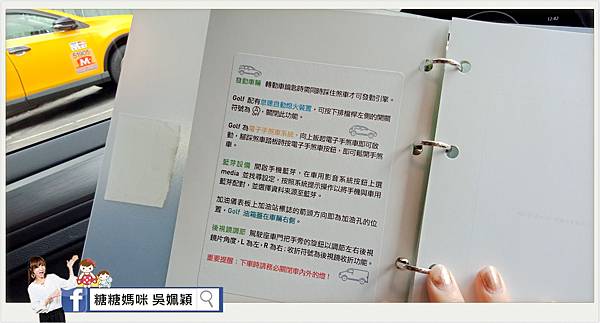 12:42
發動車輛 轉動車鑰匙時需同時踩住煞車才可發動引擎。
Golf 配有怠速自動熄火裝置，可按下排檔桿左側的開關
符號為Ⓐ，關閉此功能。
Golf 為電子手煞車系統，向上扳起電子手煞車即可放
動，腳踩煞車踏板時按電子手煞車按鈕，即可鬆開手煞
車。
藍芽設備 開啟手機藍芽，在車用影音系統按鈕上選
media 並找尋設定，按照系統提示操作以將手機與車用
藍芽配對，並選擇資料來源至藍芽。
加油儀表板上加油站標誌的箭頭方向即為加油孔的位
置，Golf 油箱蓋在車輛右側。
後視鏡調節 駕駛座車門把手旁的旋鈕以調節左右後視
鏡片角度，L 為左，R 為右；收折符號為後視鏡收折功能。
重要提醒：下車時請務必關閉車內外的燈！
f 糖糖媽咪 吳姵穎